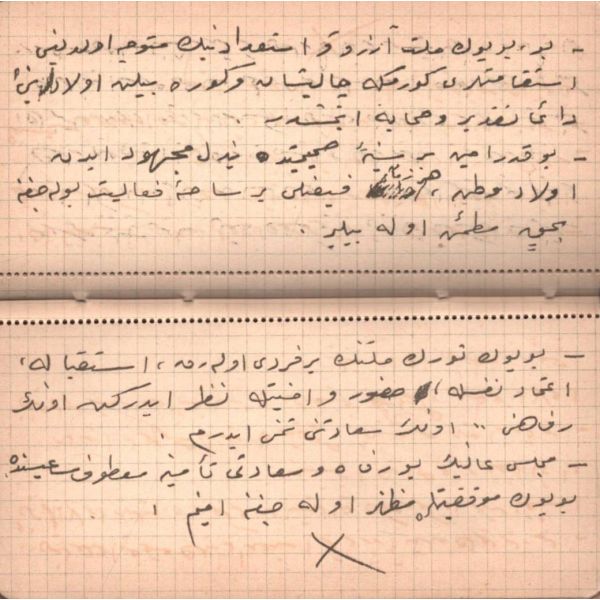 - بو، بويوك ملت آرزو و استعدادينك متوجه اولدیغی
استقامتلری كورمكه چالیشان و كوره بیلن اولادینی
دائما تقدیر و حمایه ایتمشدر.
- بو قدر امین بر نیة صمیمیتده بذل مجهود ایدن
اولاد وطن، هر زمان فیضلی بر ساحهٔ فعالیت بوله جغنه
بحقٍ مطمئن اوله بیلیر.
- بویوك تورك ملتنك بر فردی اوله رق، استقباله،
اعتماد نفسله، حضور و امنیتله نظر ایدركن اونك
رفاهنی، اونك سعادتنی تمنی ایدرم.
- مجلس عالینك بو رفاه و سعادتی تأمینه معطوف مساعیسنده
بویوك موفقیتلره مظهر اوله جغنه امینم.